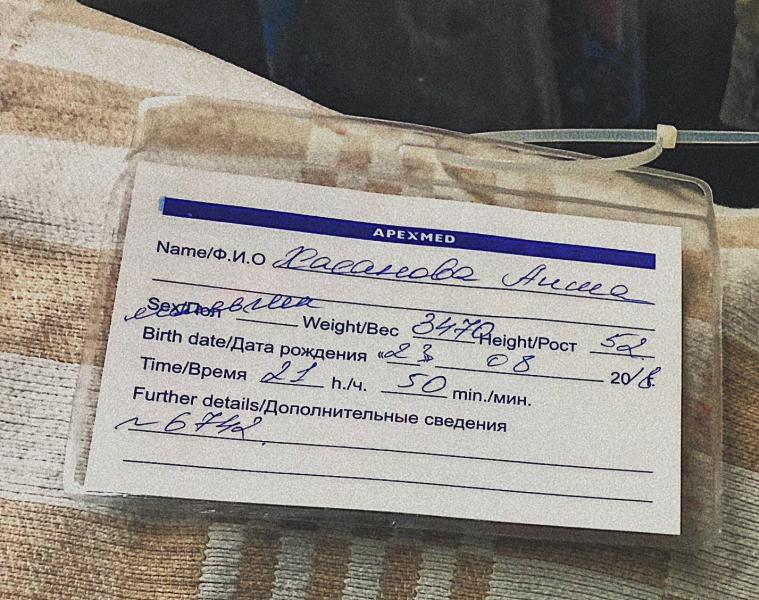 APEXMED
Name/Ф.И.О Хасанова
Sex/Пол Weight/Вес 3470 Height/Рост 52
Birth date/Дата рождения «23» 08 2018.
Time/Время 21 h./ч. 50 min./мин.
Further details/Дополнительные сведения
№6742.